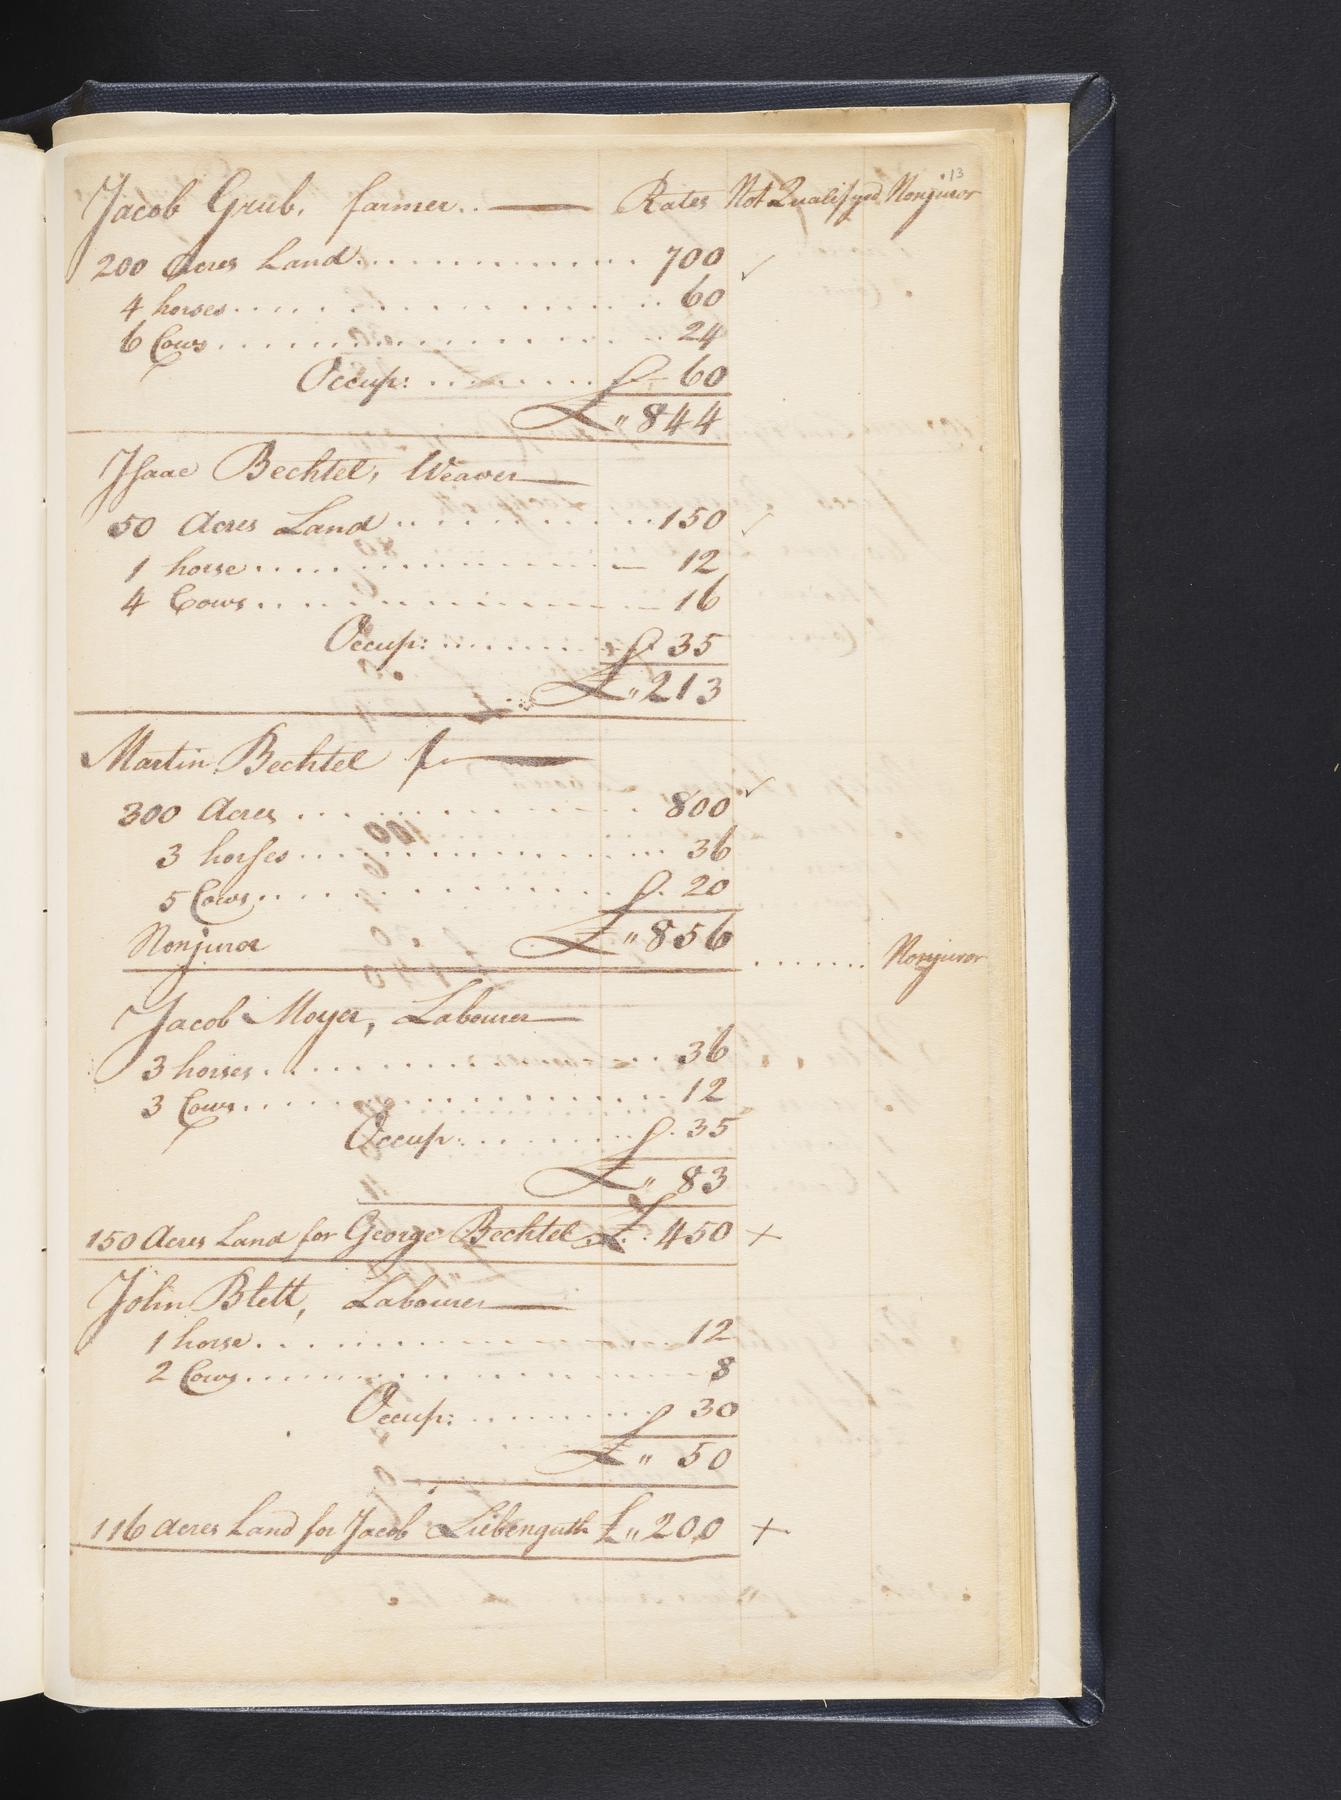 13
Jacob Grub, farmer.. — Rates Not Qualifyed Nonjuror
200 Acres Land............. 700 ✓
4 horses................ 60
6 Cows................ 24
Occup: ......... 60
£ " 844
Isaac Bechtel, Weaver —
50 Acres Land .......... 150 ✓
1 horse................ 12
4 Cows................ 16
Occup: ........ 35
£ " 213
Martin Bechtel f. —
300 Acres ............. 800 ✓
3 horses............... 36
5 Cows............... 20
Nonjuror £ " 856 ....... Nonjuror
Jacob Moyer, Labourer —
3 horses................ 36
3 Cows................ 12
Occup: ........ 35
£ " 83
150 Acres Land for George Bechtel £. 450 ×
John Blett, Labourer —
1 horse................ 12
2 Cows................ 8
Occup: ......... 30
£ " 50
116 acres Land for Jacob Liebenguth £ " 200 ×